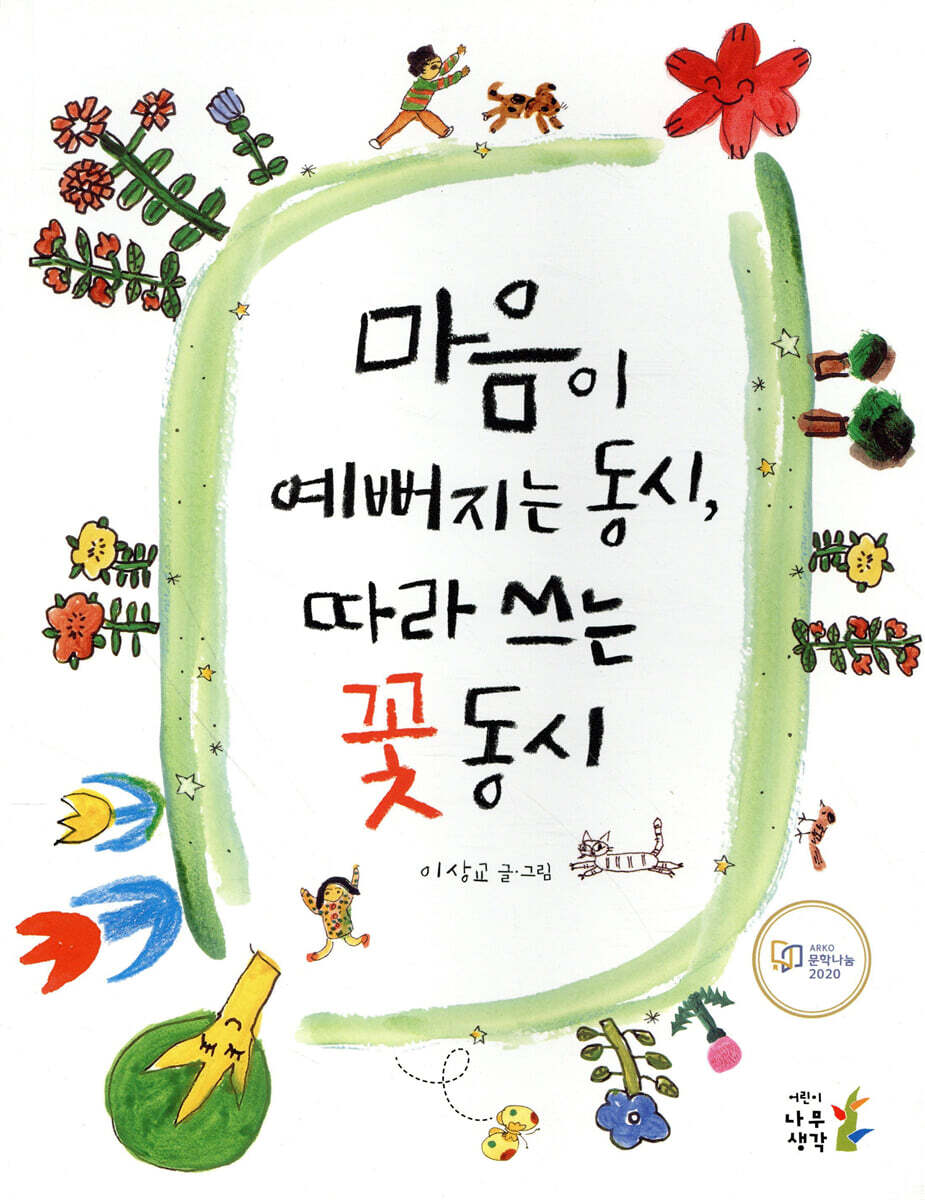 마음이
예뻐지는 동시,
따라 쓰는
꽃 동시
이상교 글·그림
ARKO
문학나눔
2020
어린이
나무
생각